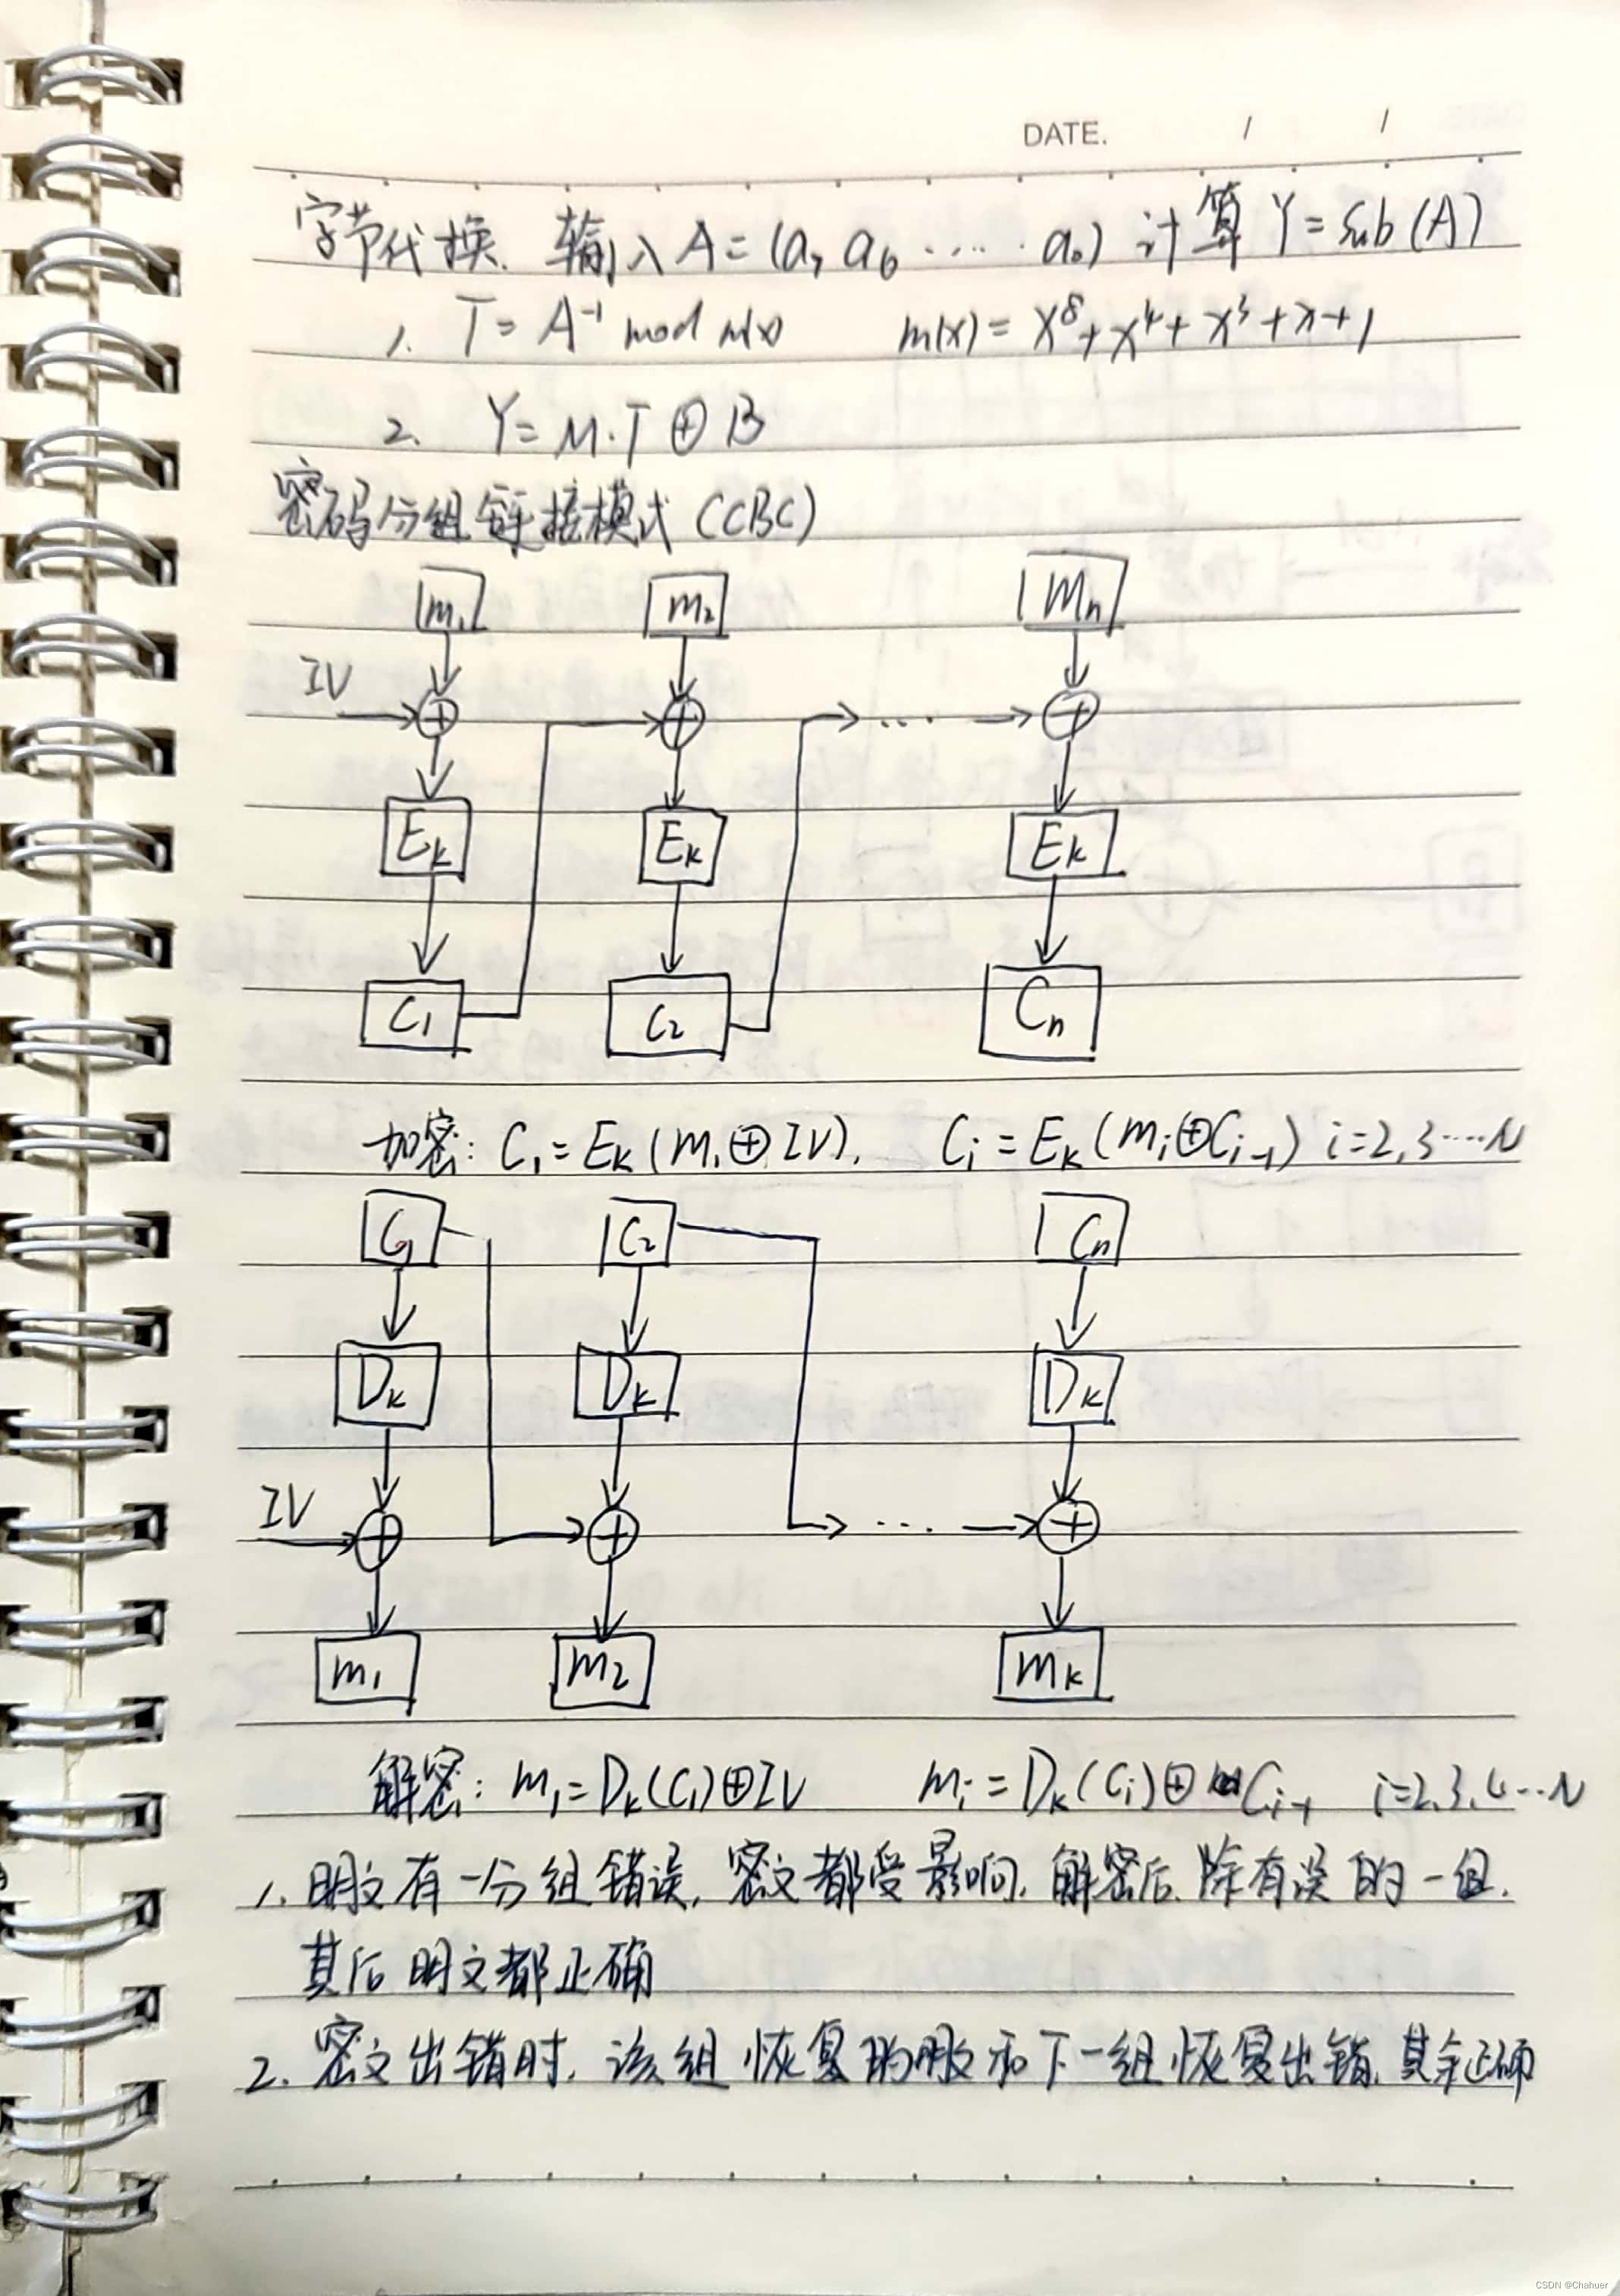 DATE. / /
字节代换. 输入 A = (a₇ a₆ ···· a₀) 计算 Y = Sub(A)
1. T = A⁻¹ mod m(x) m(x) = x⁸ + x⁴ + x³ + x + 1
2. Y = M·T ⊕ B
密码分组链接模式 (CBC)
m₁ m₂ Mₙ
IV ⊕ ⊕ ··· ⊕
Eₖ Eₖ Eₖ
C₁ C₂ Cₙ
加密: C₁ = Eₖ(m₁⊕IV). Cᵢ = Eₖ(mᵢ⊕Cᵢ₋₁) i=2,3····N
C₁ C₂ Cₙ
Dₖ Dₖ Dₖ
IV ⊕ ⊕ ··· ⊕
m₁ m₂ mₖ
解密: m₁ = Dₖ(C₁)⊕IV mᵢ = Dₖ(Cᵢ)⊕Cᵢ₋₁ i=2,3,4···N
1. 明文有一分组错误, 密文都受影响, 解密后, 除有误的一组,
其后明文都正确
2. 密文出错时, 该组恢复的明文和下一组恢复出错, 其余正确
CSDN @Chahuer